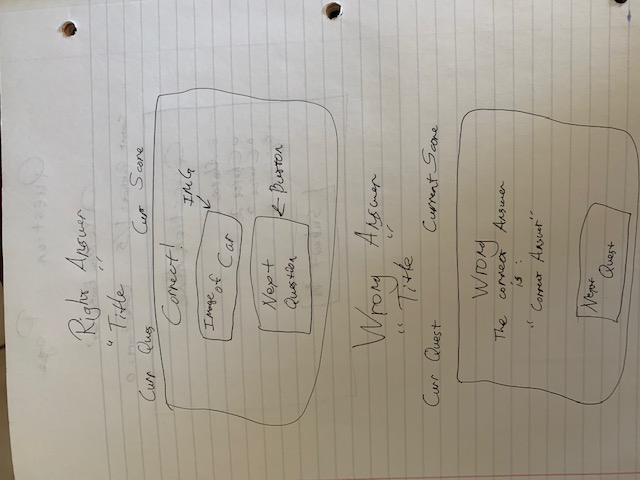 Right Answer
"Title"
Curr Ques Curr Score
Correct!
IMG
Image of Car
Next
Question
Button
Wrong Answer
"Title"
Curr Quest Current Score
Wrong
The correct Answer
is:
"Correct Answer"
Next
Quest